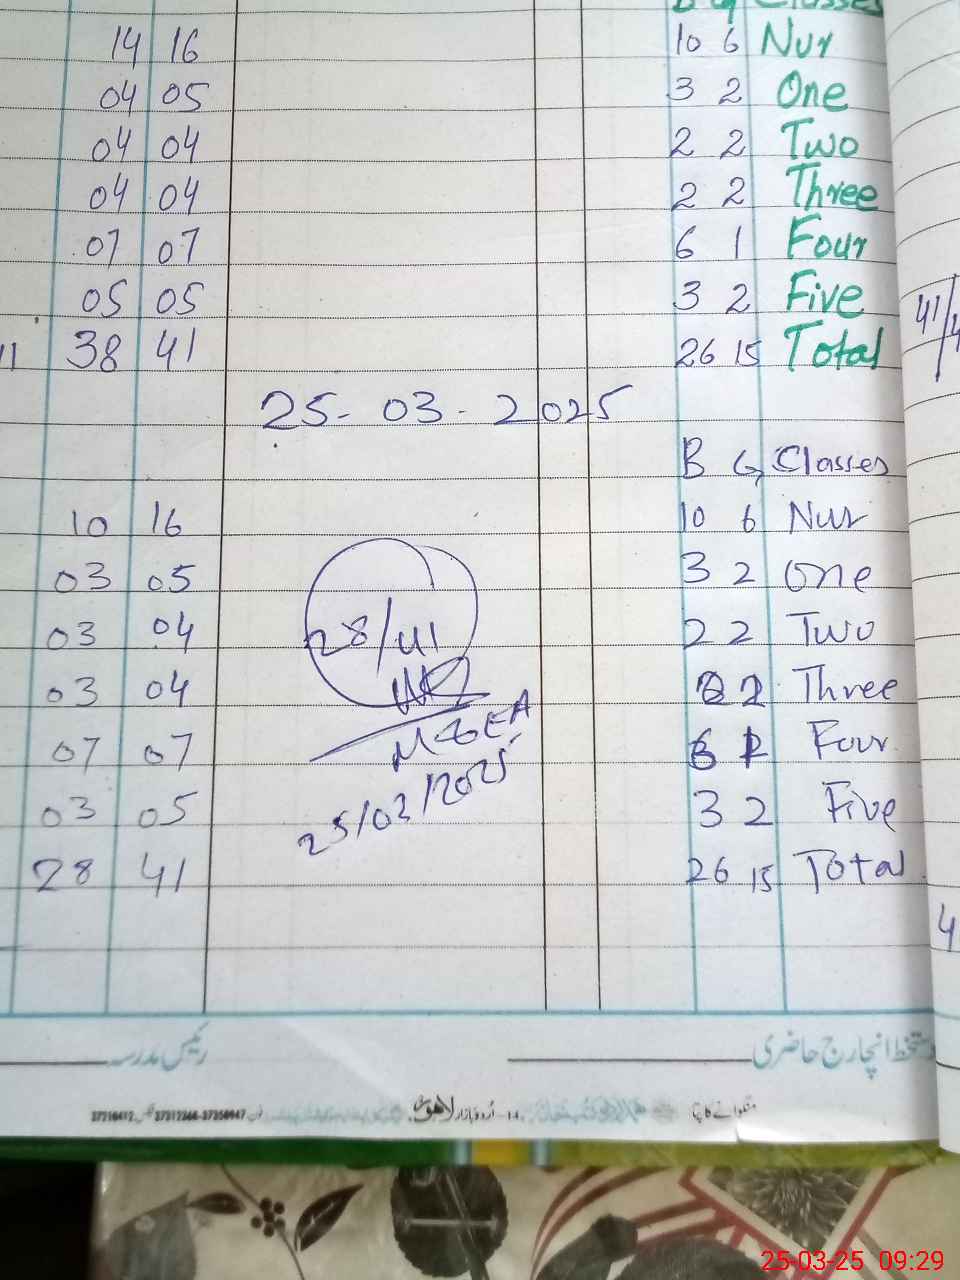 B G Classes
14 16 10 6 Nur
04 05 3 2 One
04 04 2 2 Two
04 04 2 2 Three
07 07 6 1 Four
05 05 3 2 Five
38 41 26 15 Total
41/
25-03-2025
B G Classes
10 16 10 6 Nur
03 05 3 2 One
03 04 2 2 Two
03 04 2 2 Three
07 07 6 1 Four
03 05 3 2 Five
28 41 26 15 Total
28/41
25/03/2025
دستخط انچارج حاضری
رئیس مدرسہ
اردو بازار لاہور
25-03-25 09:29